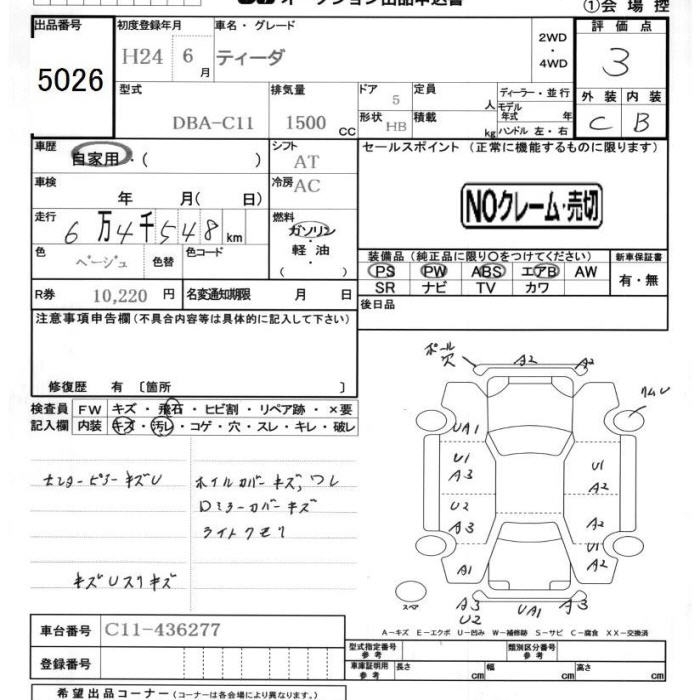 オークション出品申込書
①会場控
出品番号
5026
初度登録年月
H24 6月
車名・グレード
ティーダ
2WD
・
4WD
評価点
3
型式
DBA-C11
排気量
1500 CC
ドア
5
形状
HB
定員
人
積載
kg
ディーラー・並行
モデル年式 年
ハンドル 左・右
外装 内装
C B
車歴
自家用・( )
シフト
AT
車検
年 月( 日)
冷房
AC
走行
6万4千548km
燃料
ガソリン
軽油
( )
色
ベージュ
色替
色コード
R券
10,220 円
名変通知期限 月 日
セールスポイント(正常に機能するものに限ります)
NOクレーム・売切
装備品(純正品に限り○をつけてください)
PS PW ABS エアB AW
SR ナビ TV カワ
新車保証書
有・無
後日品
注意事項申告欄(不具合内容等は具体的に記入して下さい)
修復歴 有〔箇所 〕
検査員
記入欄
FW キズ・飛石・ヒビ割・リペア跡・×要
内装 キズ・汚レ・コゲ・穴・スレ・キレ・破レ
センターピラーキズU
ホイルカバーキズ、ワレ
Dミラーカバーキズ
ライトクモリ
キズUスリキズ
ポール穴
A2
A2
UA1
クムU
U1
A3
U1
A2
U2
A3
A2
U1
A1
A2
スペア
A3
U2
UA1
A3
A-キズ E-エクボ U-凹み W-補修跡 S-サビ C-腐食 XX-交換済
車台番号
C11-436277
登録番号
型式指定番号
参考
類別区分番号
参考
車庫証明用
参考
長さ cm
幅 cm
高さ cm
希望出品コーナー(コーナーは各会場により異なります。)